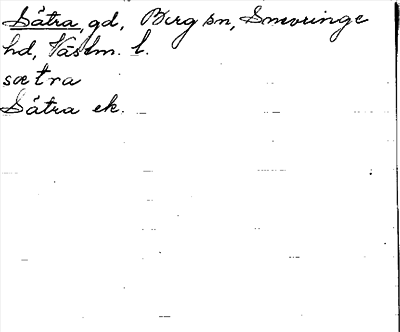 Sätra, gd, Berg sn, Snevringe
hd, Västm. l.
sætra
Sätra ek.